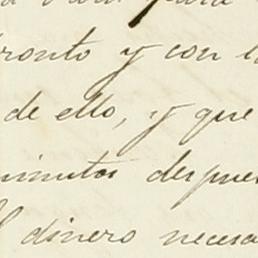 para
pronto y con l
de ello, y que
minutos despues
dinero neces